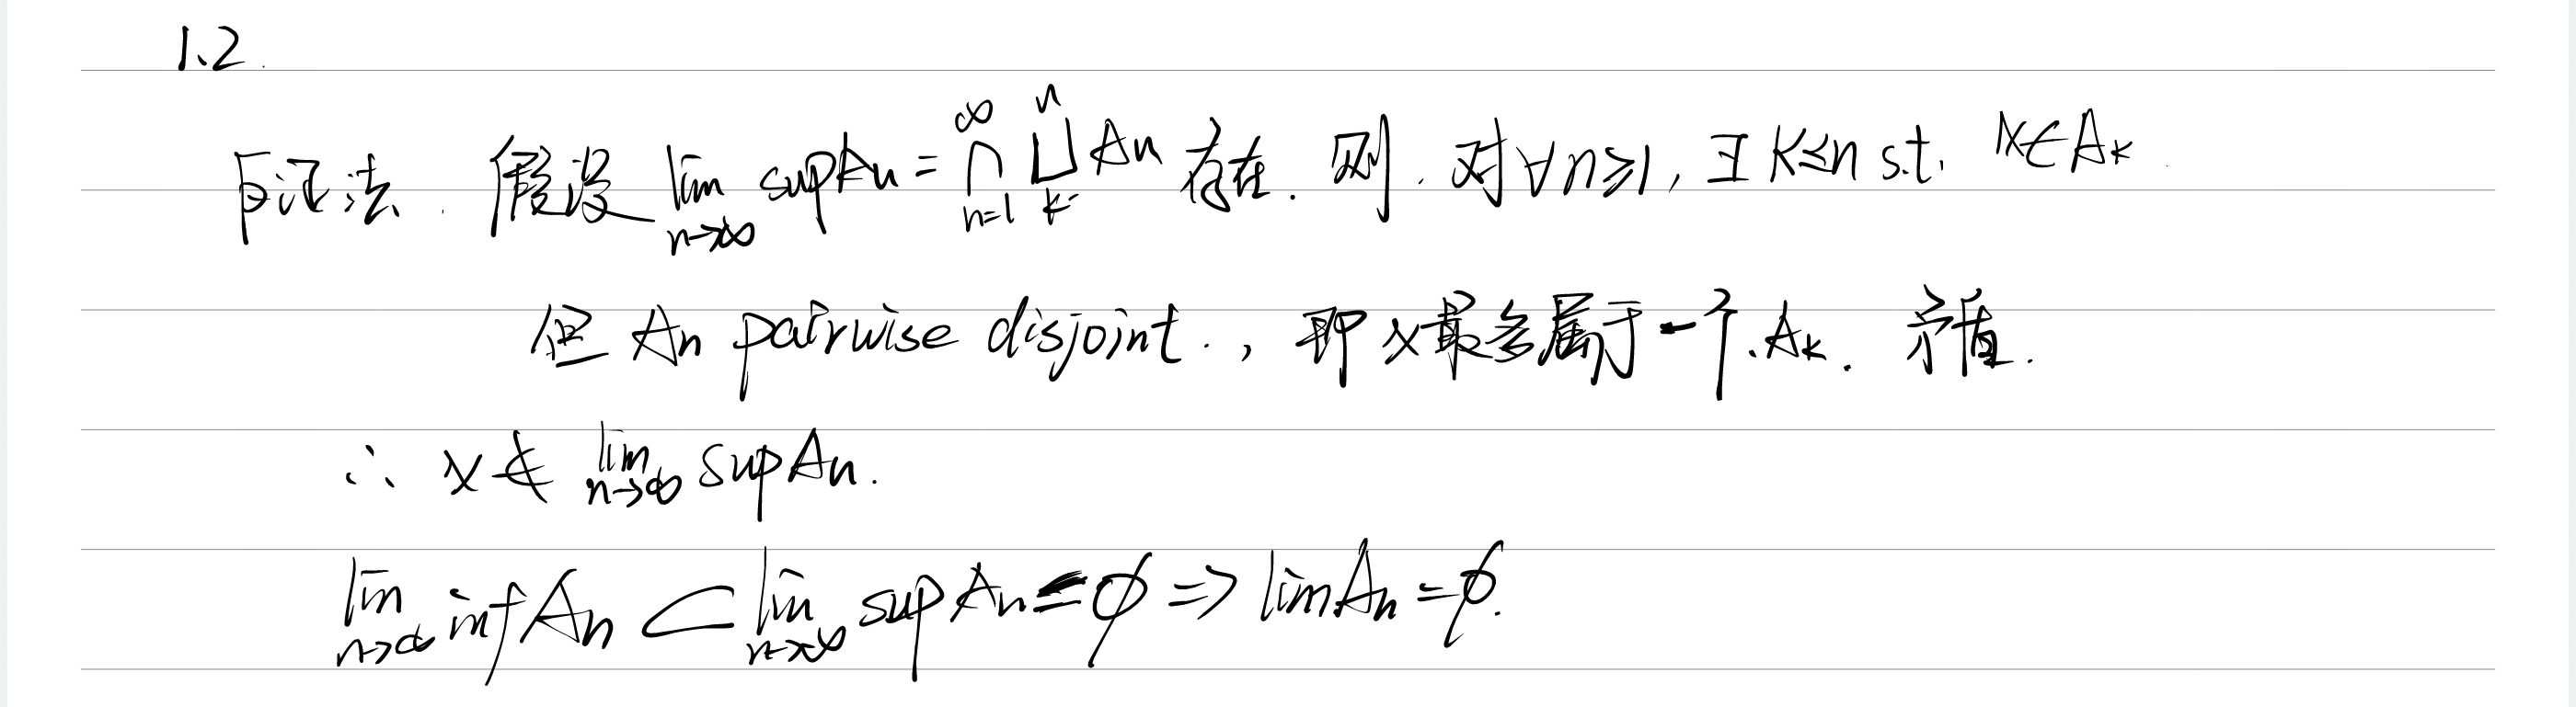 1.2.
反证法. 假设 lim_{n→∞} sup An = ⋂_{n=1}^{∞} ⋃_{k}^{n} An 存在. 则. 对 ∀n≥1, ∃ k≤n s.t. x∈Ak.
但 An pairwise disjoint., 即 x 最多属于一个.Ak. 矛盾.
∴ x∉ lim_{n→∞} sup An.
lim_{n→∞} inf An ⊂ lim_{n→∞} sup An = ϕ ⇒ lim An = ϕ.